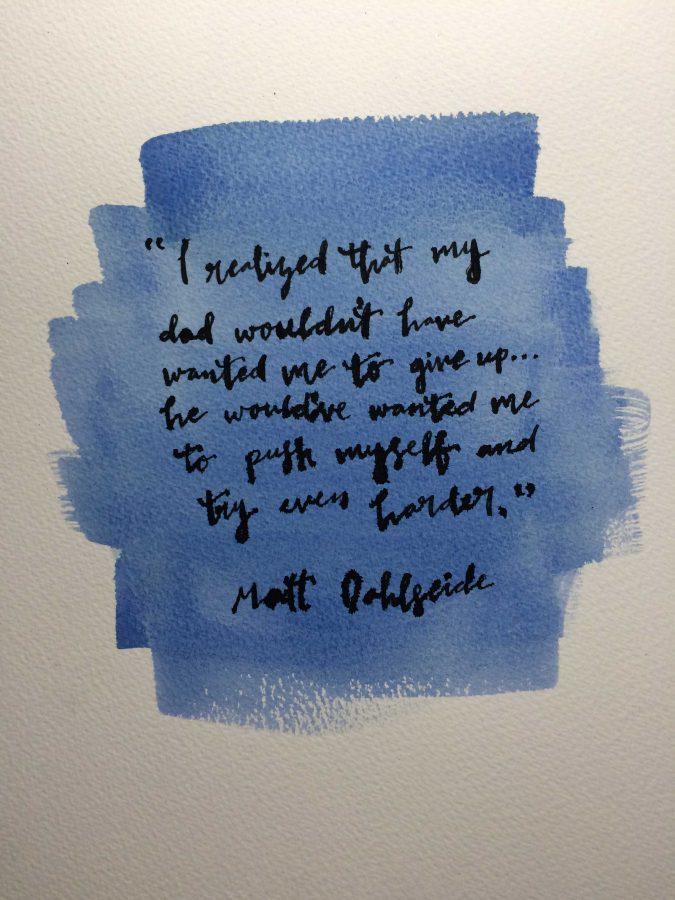 "I realized that my
dad wouldn't have
wanted me to give up...
he would've wanted me
to push myself and
try even harder."
Matt Dahlseide